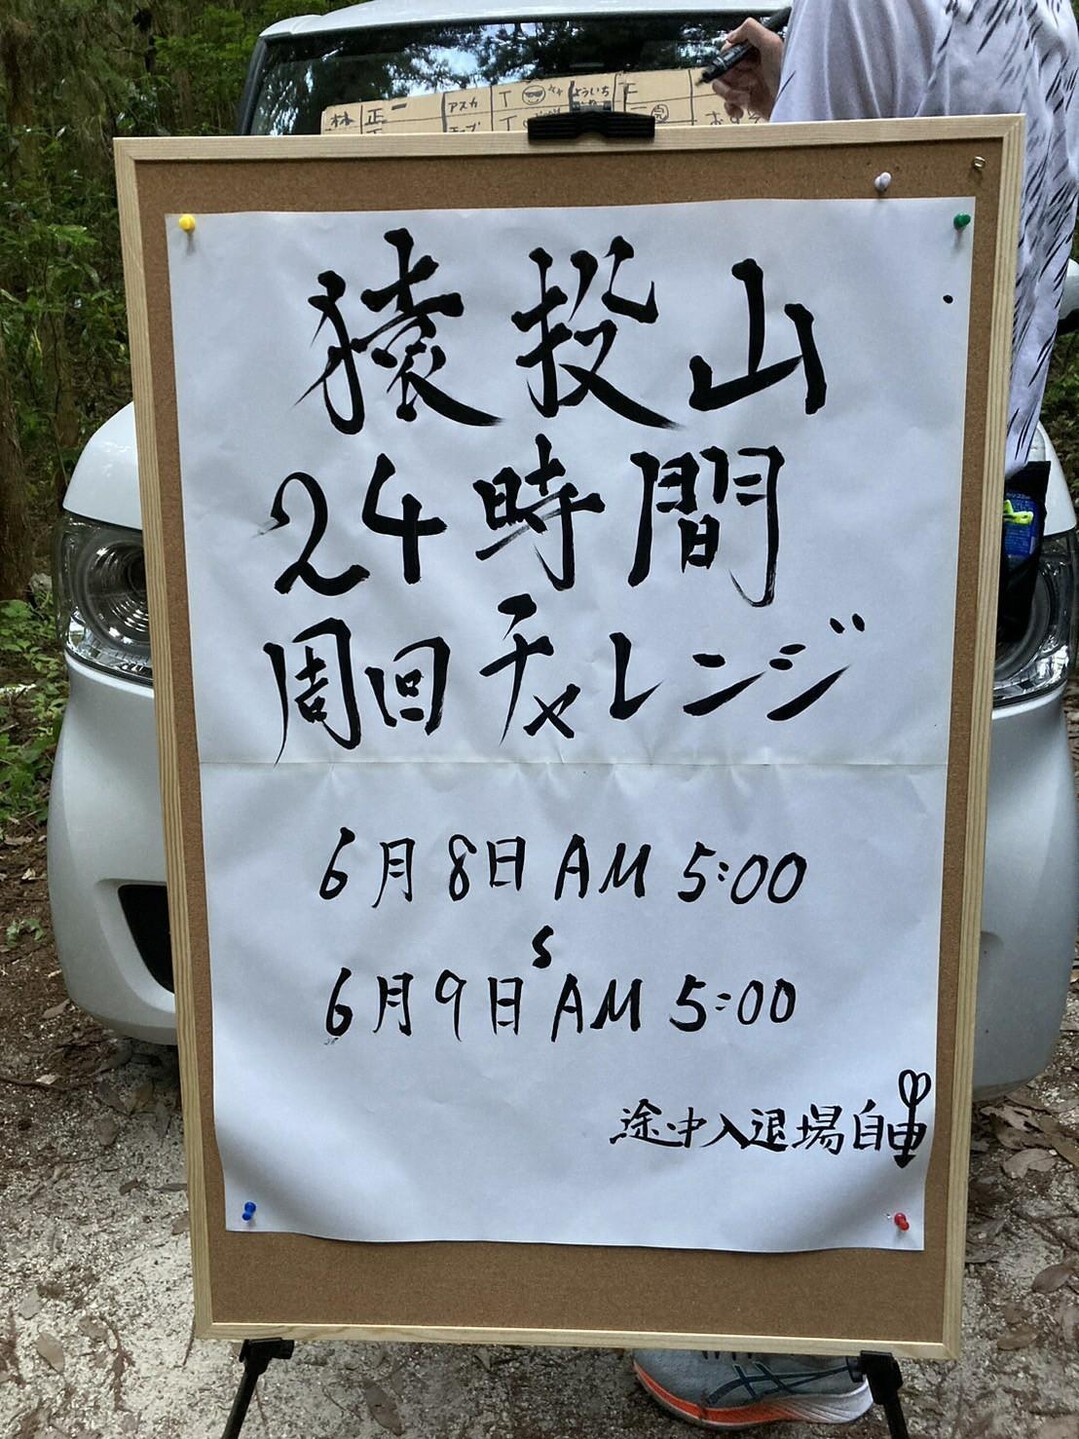 林 正一 アスカ T よういち
猿投山
24時間
周回チャレンジ
6月8日 AM 5:00
〜
6月9日 AM 5:00
途中入退場自由